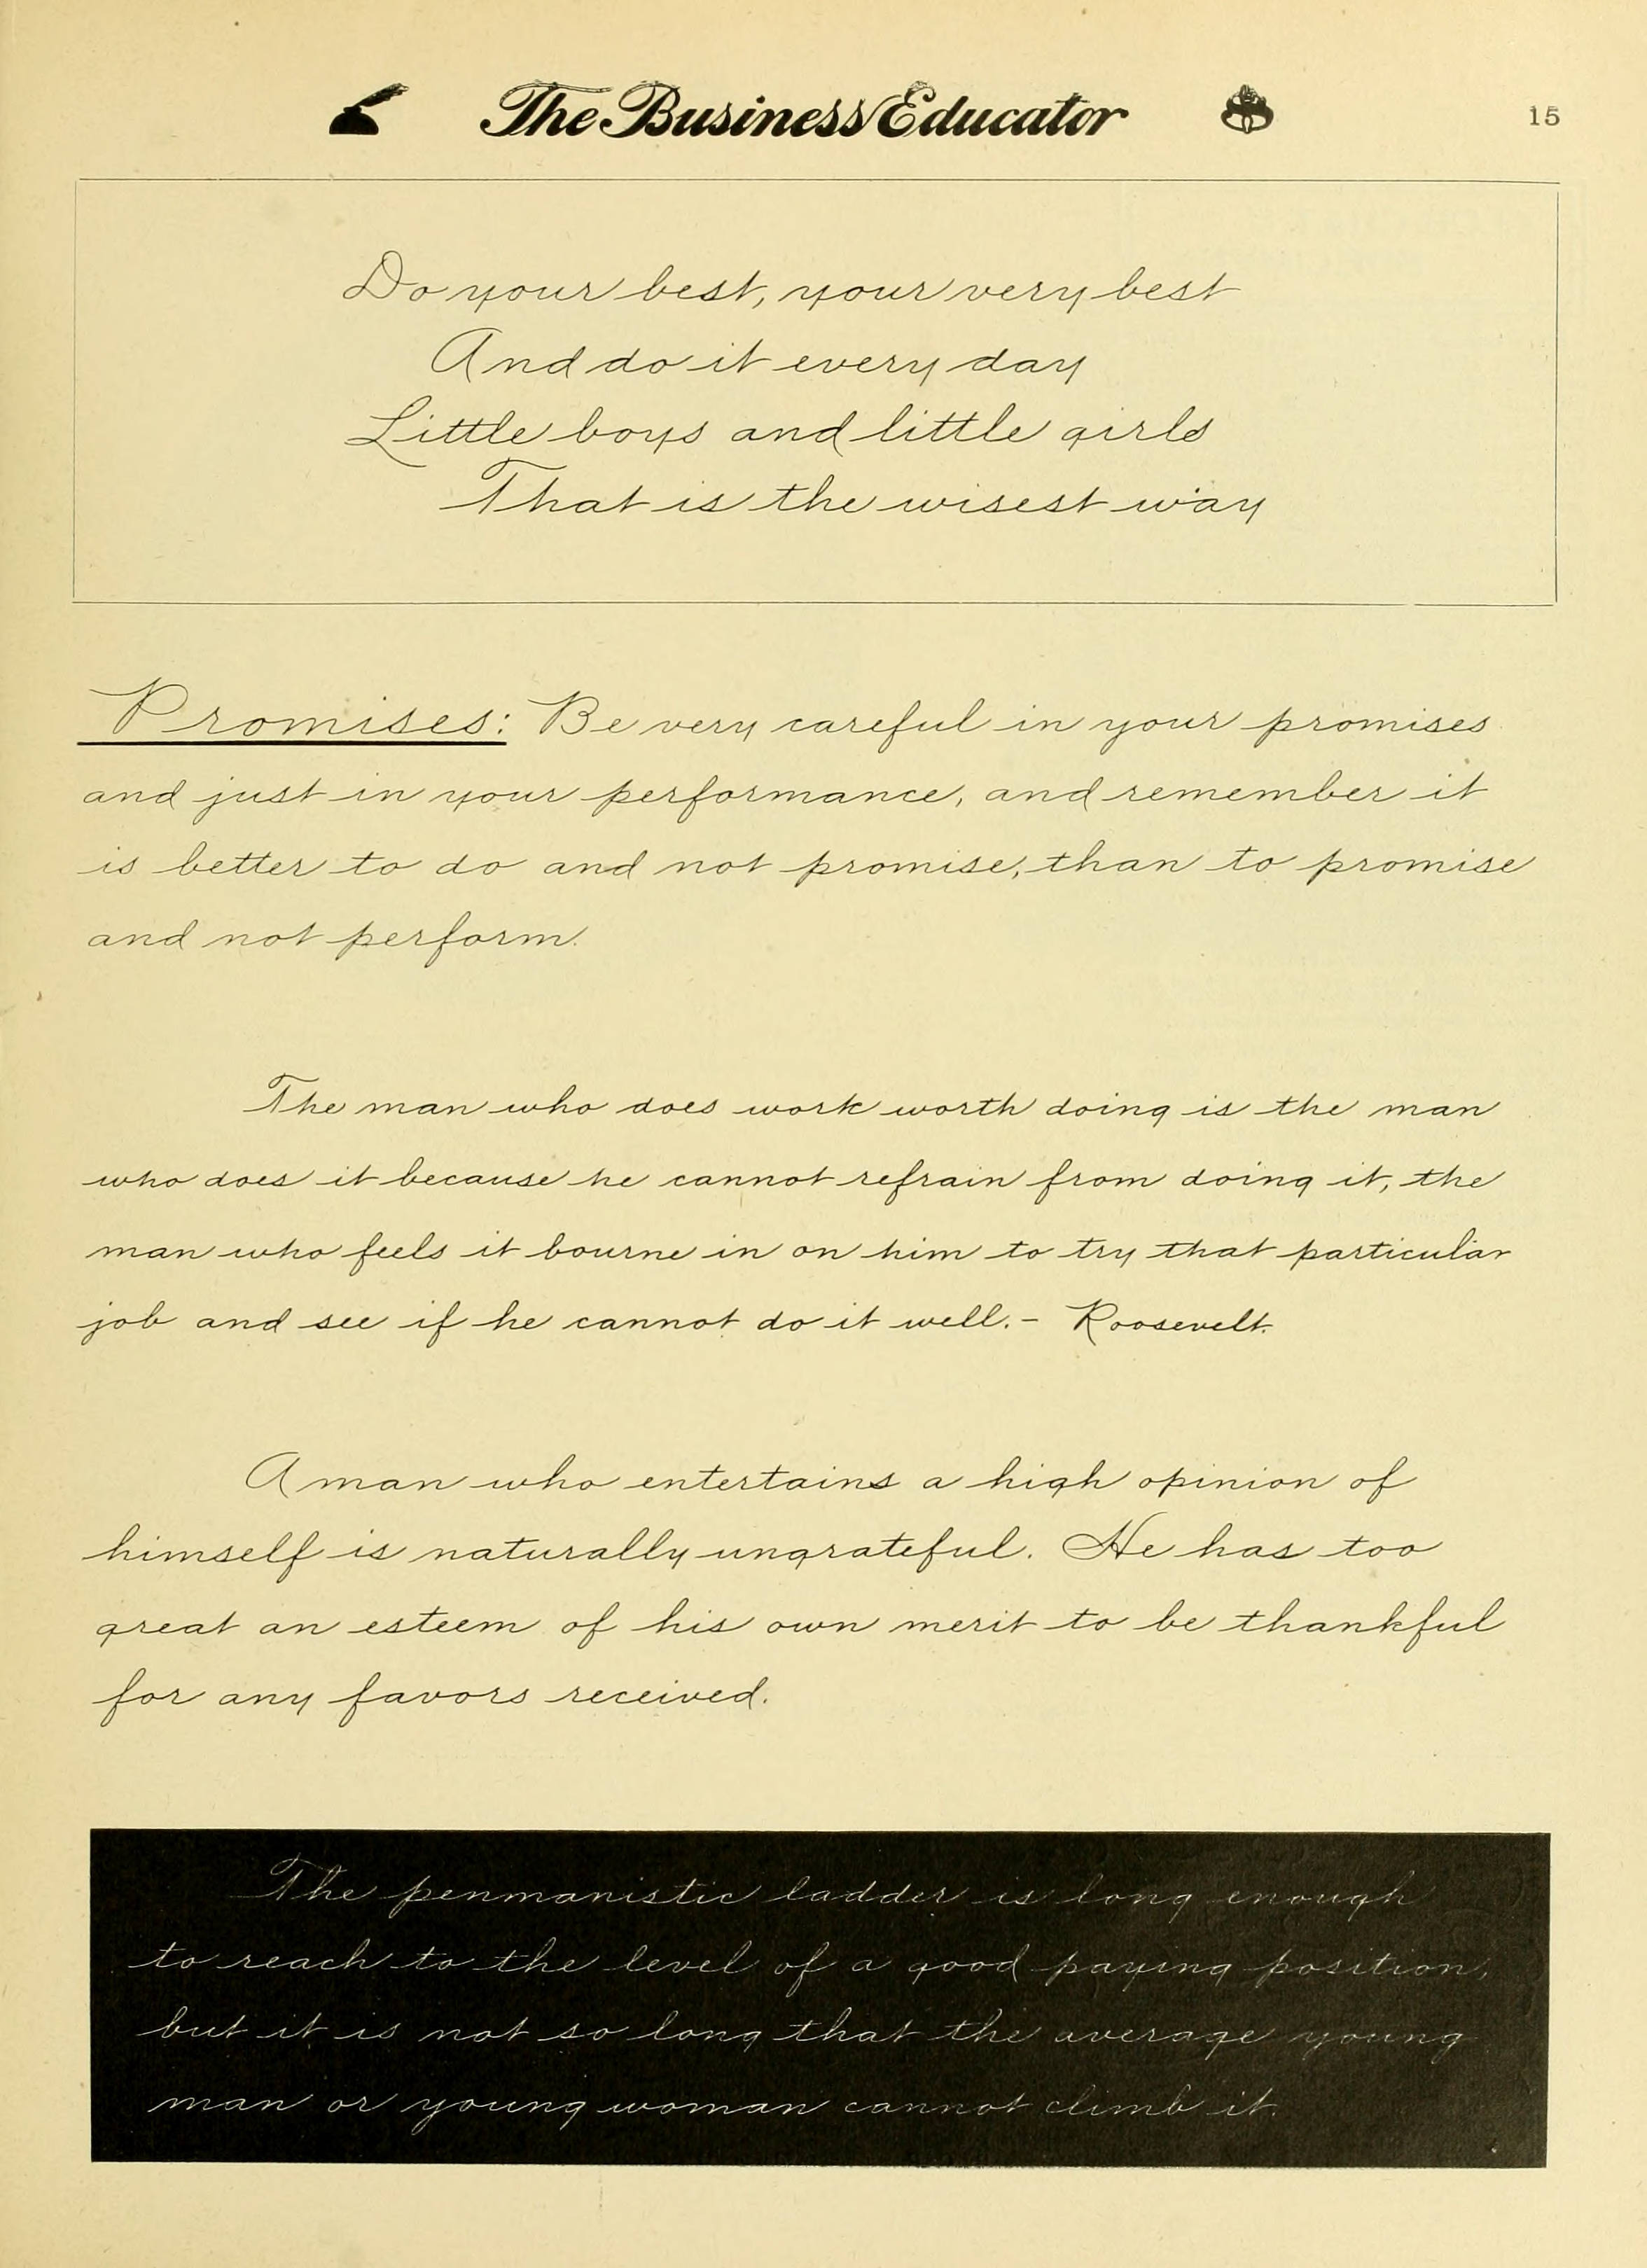 The Business Educator 15
Do your best, your very best
And do it every day
Little boys and little girls
That is the wisest way
Promises: Be very careful in your promises
and just in your performance, and remember it
is better to do and not promise, than to promise
and not perform.
The man who does work worth doing is the man
who does it because he cannot refrain from doing it, the
man who feels it bourne in on him to try that particular
job and see if he cannot do it well. - Roosevelt.
A man who entertains a high opinion of
himself is naturally ungrateful. He has too
great an esteem of his own merit to be thankful
for any favors received.
The penmanistic ladder is long enough
to reach to the level of a good paying position,
but it is not so long that the average young
man or young woman cannot climb it.